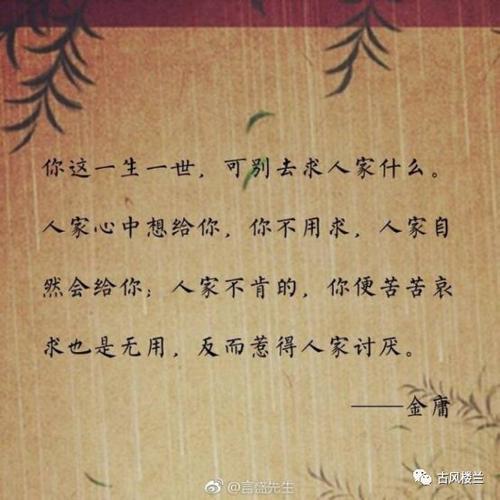 你这一生一世，可别去求人家什么。
人家心中想给你，你不用求，人家自
然会给你；人家不肯的，你便苦苦哀
求也是无用，反而惹得人家讨厌。
——金庸
@言盛先生
古风楼兰